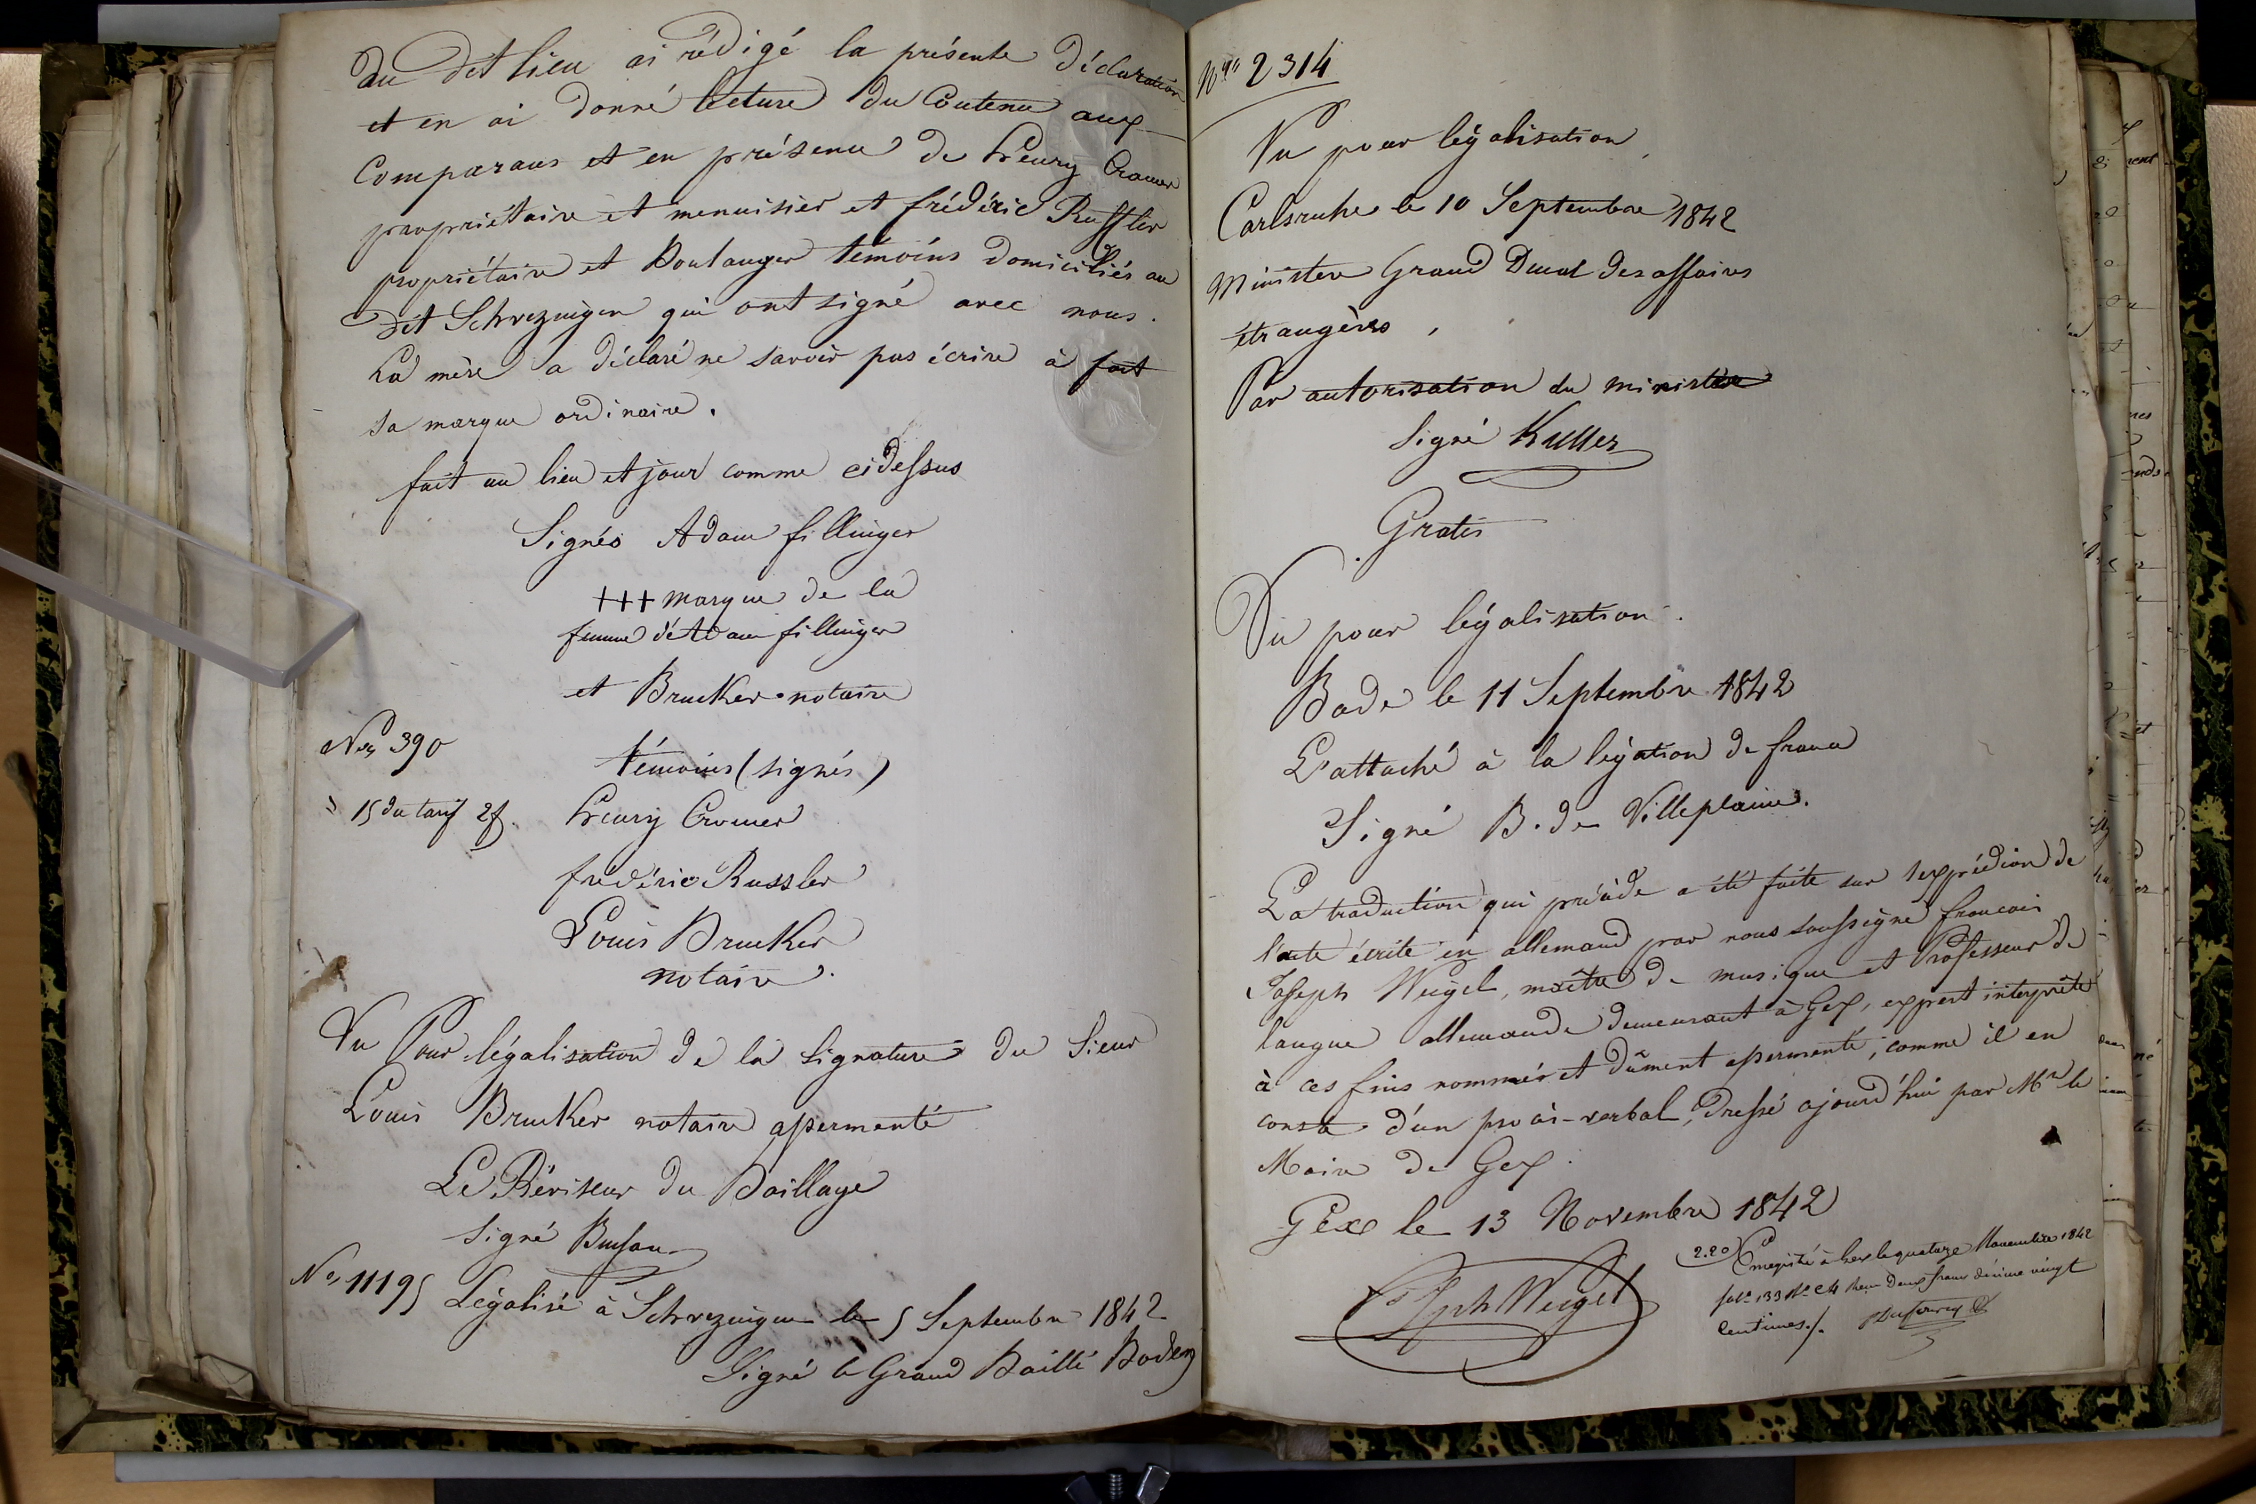 du dit lieu ai rédigé la présente déclaration
et en ai donné lecture du Contenu aux
Comparans et en présence de henry Cromer
propriétaire et menuisier et frédéric Russler
propriétaire et Boulanger témoins domiciliés au
dit Schvezingen qui ont signé avec nous.
La mère a déclaré ne savoir pas écrire à fait
sa marque ordinaire.
fait au lieu et jour comme cidessus
Signés Adam fillinger
+++ marque de la
femme d'Adam fillinger
et Brucker notaire
Nos 390
témoins (signés)
15 du tarif 2f.
henry Cromer
frédéric Russler
Louis Brucker
notaire.
Vu Pour légalisation de la Signature du Sieur
Louis Brucker notaire assermenté
Le Réviseur du Baillage
signé
No 11195
Légalisé à Schvezingen le 5 Septembre 1842
Signé le Grand Bailli
No 2314
Vu pour légalisation,
Carlsruhe le 10 Septembre 1842
Ministere Grand Ducal des affaires
étrangères,
Par autorisation du ministère
Signé
Gratis
Vu pour légalisation.
Bade le 11 Septembre 1842
L'attaché à la légation de france
Signé B. de Villeplaine.
La traduction qui précède a été faite sur l'expédion de
l'acte écrite en allemand par nous soussigné francois
Joseph Weigel, maître de musique et Professeur de
langue allemande demeurant à Gex, expert interprète
à ces fins nommés et dûment assermenté; comme il en
consta d'un procès-verbal, dressé ajourd'hui par Mr le
Maire de Gex.
Gex le 13 Novembre 1842
Jph Weigel
2.20
Enregistré à Gex le quatorze Novembre 1842
fol. 133 Reçu deux francs décime vingt
Centimes./.